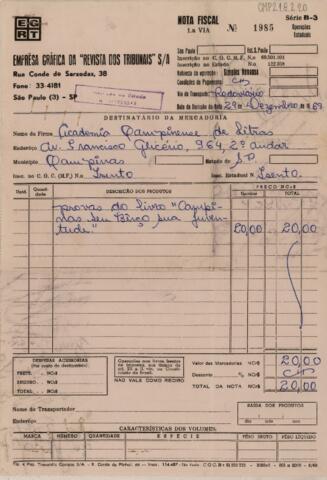 CMP2.1.8.2.20
EGRT
NOTA FISCAL
1.a VIA
Nº 1985
Série B-3
Operações Estaduais
EMPRÊSA GRÁFICA DA "REVISTA DOS TRIBUNAIS" S/A
Rua Conde de Sarzedas, 38
Fone: 33-4181
São Paulo (3) - SP
São Paulo
Est. S. Paulo
Natureza da operação: Simples Remessa
Condições de Pagamento
Via de Transporte Rodoviário
Data da Emissão da Nota 29 de Dezembro de 69
DESTINATÁRIO DA MERCADORIA
Nome da Firma Academia Campinense de Letras
Endereço Av. Francisco Glicério, 964, 2º andar
Município Campinas Estado de S.P.
Insc. no C.G.C. (M.F.) N.o Isento Insc. Estadual N.o Isento
Unid. Quantidade DESCRIÇÃO DOS PRODUTOS PREÇO NCr$
Unitário TOTAL
provas do livro "Campinas seu Berço sua juventude" 20,00 20,00
DESPESAS ACESSÓRIAS
(Por conta do destinatário)
FRETE . . NCr$
SEGURO . . NCr$
TOTAL . . NCr$
NÃO VALE COMO RECIBO
Valor das Mercadorias NCr$ 20,00
Desconto %) NCr$
TOTAL DA NOTA NCr$ 20,00
Nome do Transportador
Endereço
SAÍDA DOS PRODUTOS
CARACTERÍSTICAS DOS VOLUMES:
MARCA NÚMERO QUANTIDADE ESPÉCIE PÊSO BRUTO PÊSO LÍQUIDO